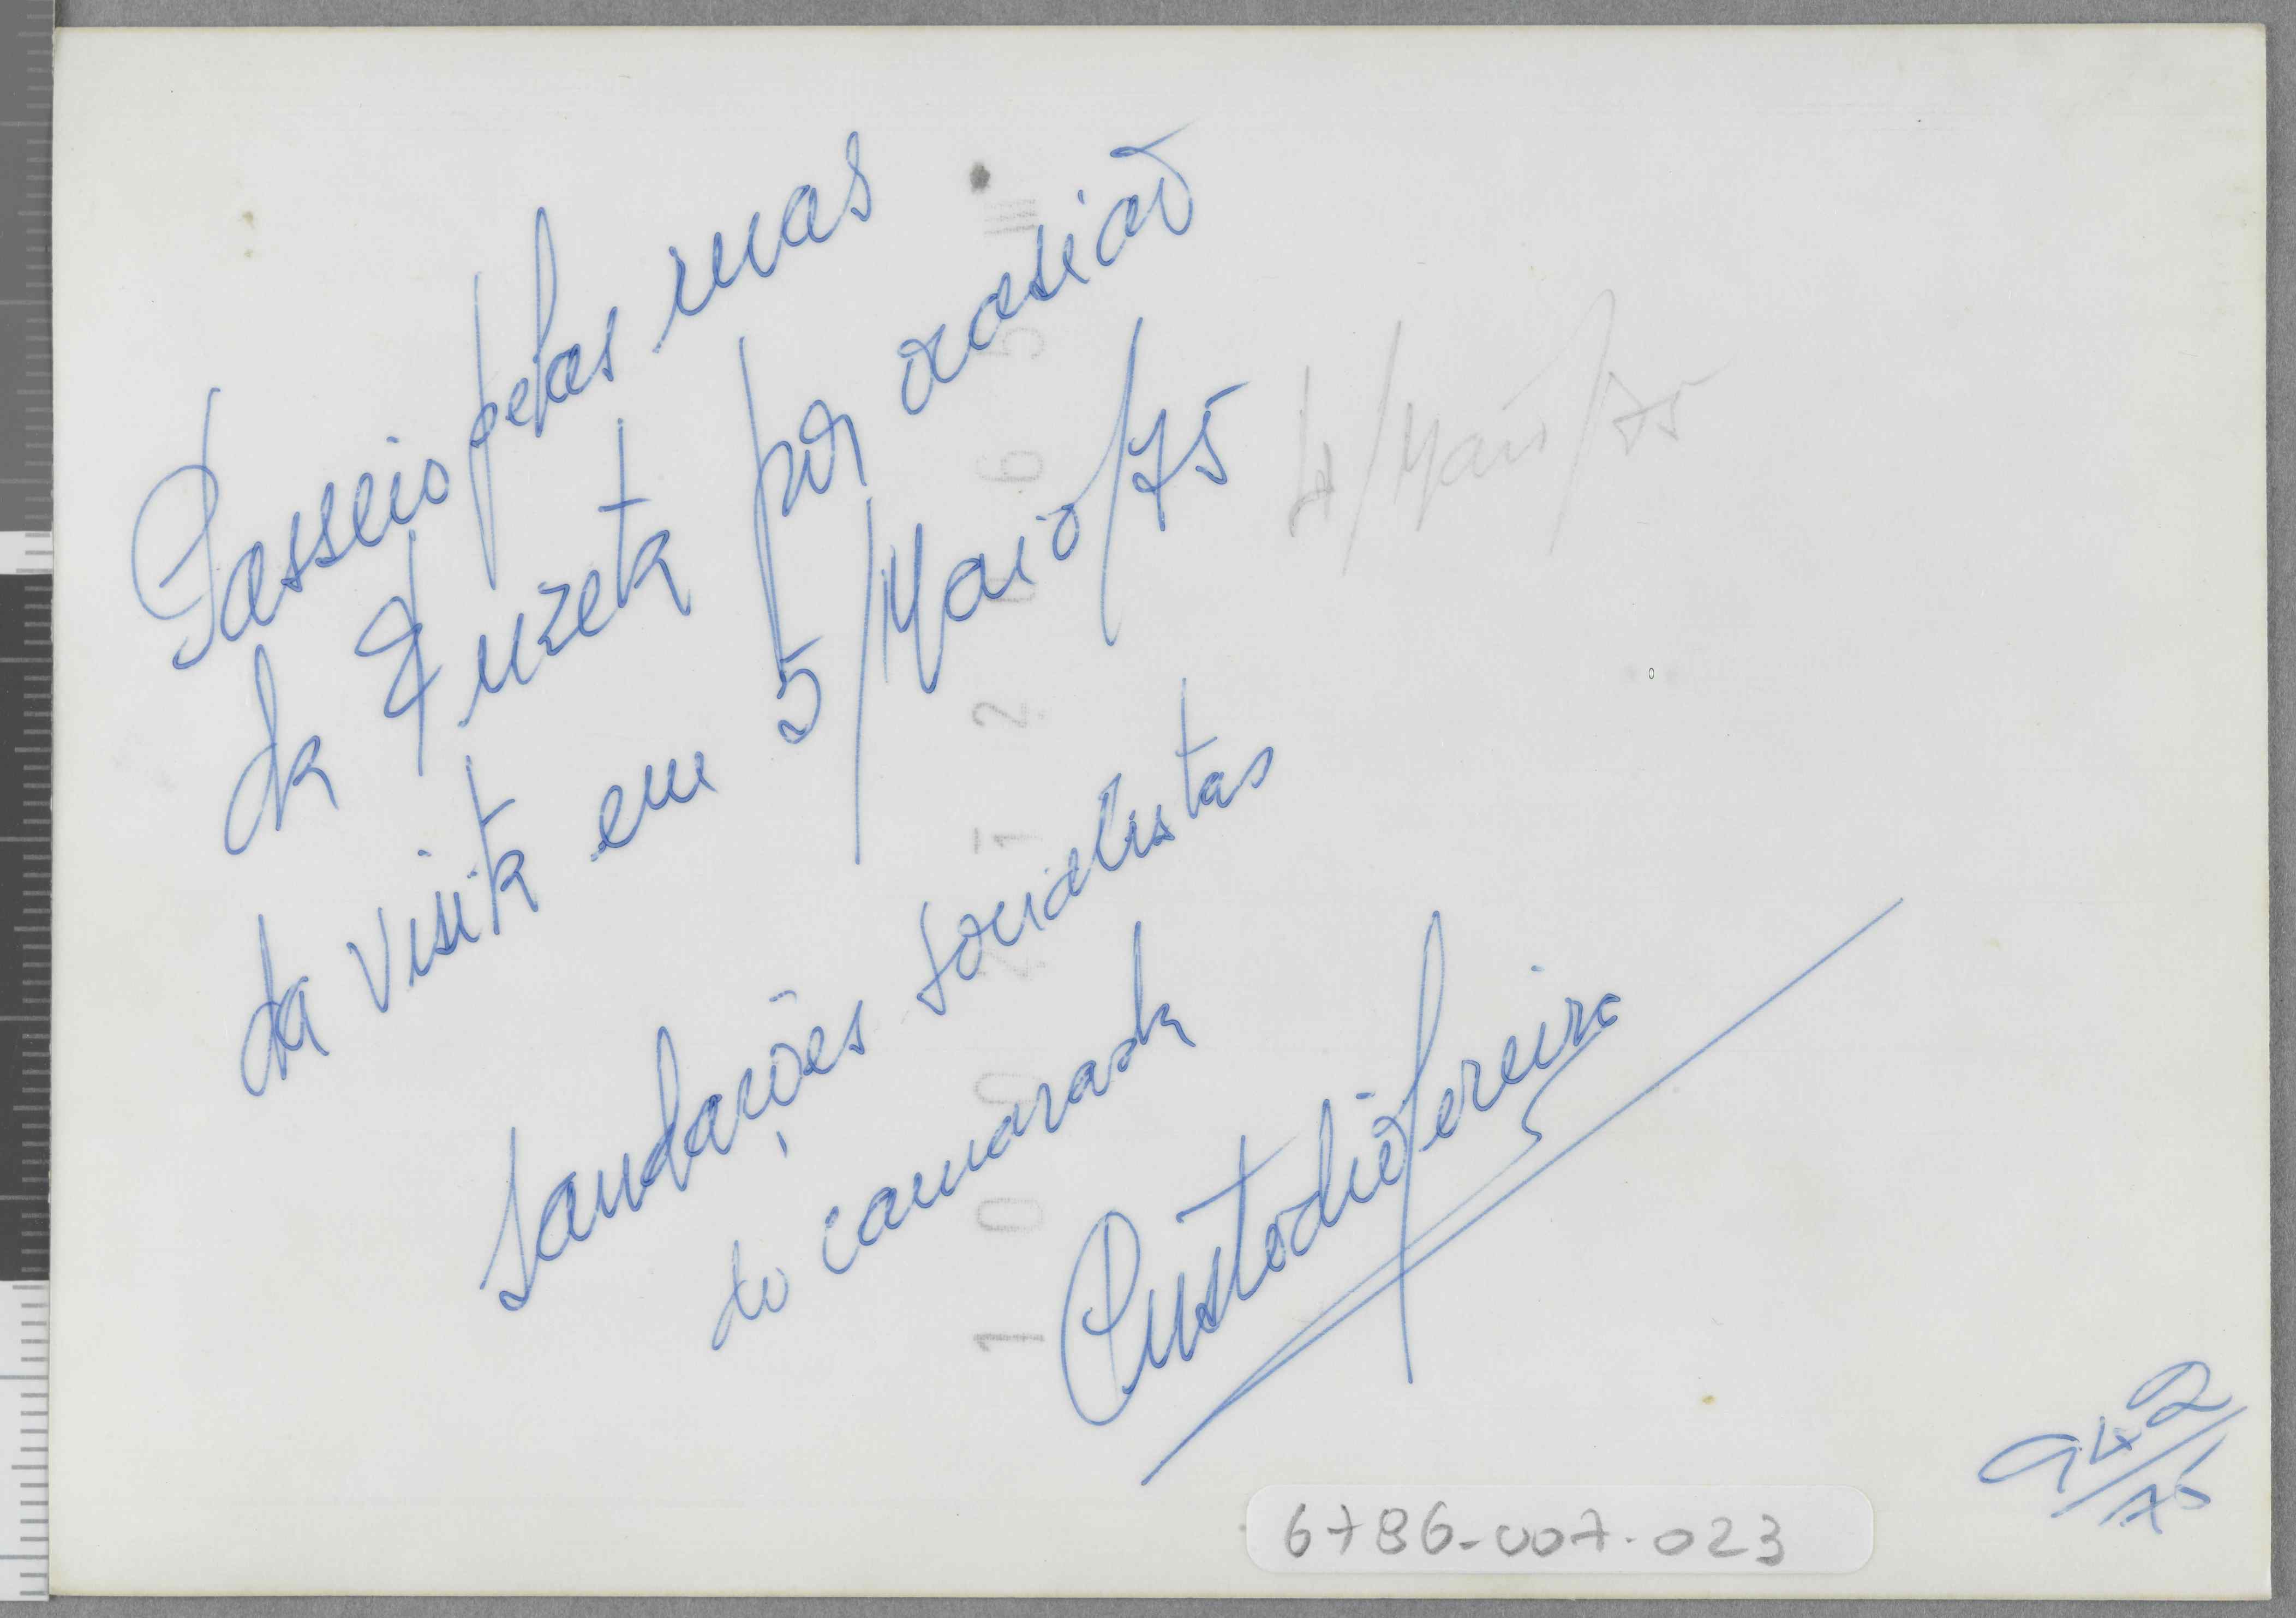 Passeio pelas ruas
da Fuzeta por ocasião
da visita em 5/Maio/75
4/Maio/75
Saudações socialistas
do camarada
Custodio Pereira
942/75
6786-007.023